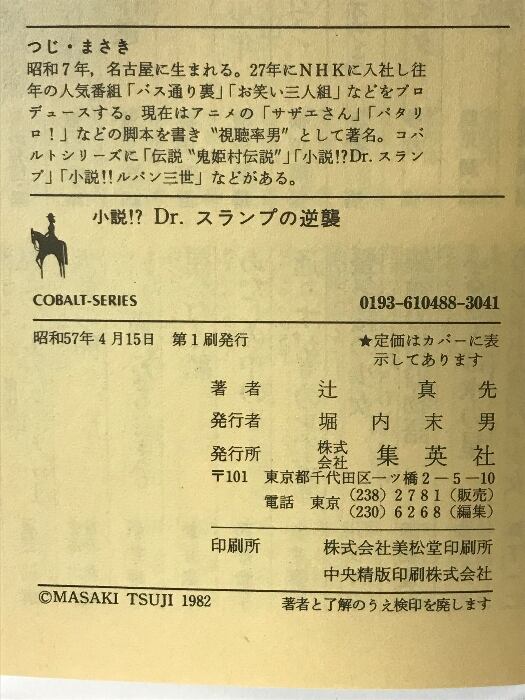 つじ・まさき
昭和7年，名古屋に生まれる。27年にNHKに入社し往
年の人気番組「バス通り裏」「お笑い三人組」などをプロ
デュースする。現在はアニメの「サザエさん」「パタリ
ロ！」などの脚本を書き〝視聴率男〟として著名。コバ
ルトシリーズに「伝説〝鬼姫村伝説〟」「小説!?Dr.スラン
プ」「小説!!ルパン三世」などがある。
小説!? Dr. スランプの逆襲
COBALT-SERIES
0193-610488-3041
昭和57年4月15日 第1刷発行
★定価はカバーに表
示してあります
著者 辻真先
発行者 堀内末男
発行所 株式会社 集英社
〒101 東京都千代田区一ツ橋2－5－10
電話 東京 (238) 2781 (販売)
(230) 6268 (編集)
印刷所 株式会社美松堂印刷所
中央精版印刷株式会社
©MASAKI TSUJI 1982
著者と了解のうえ検印を廃します